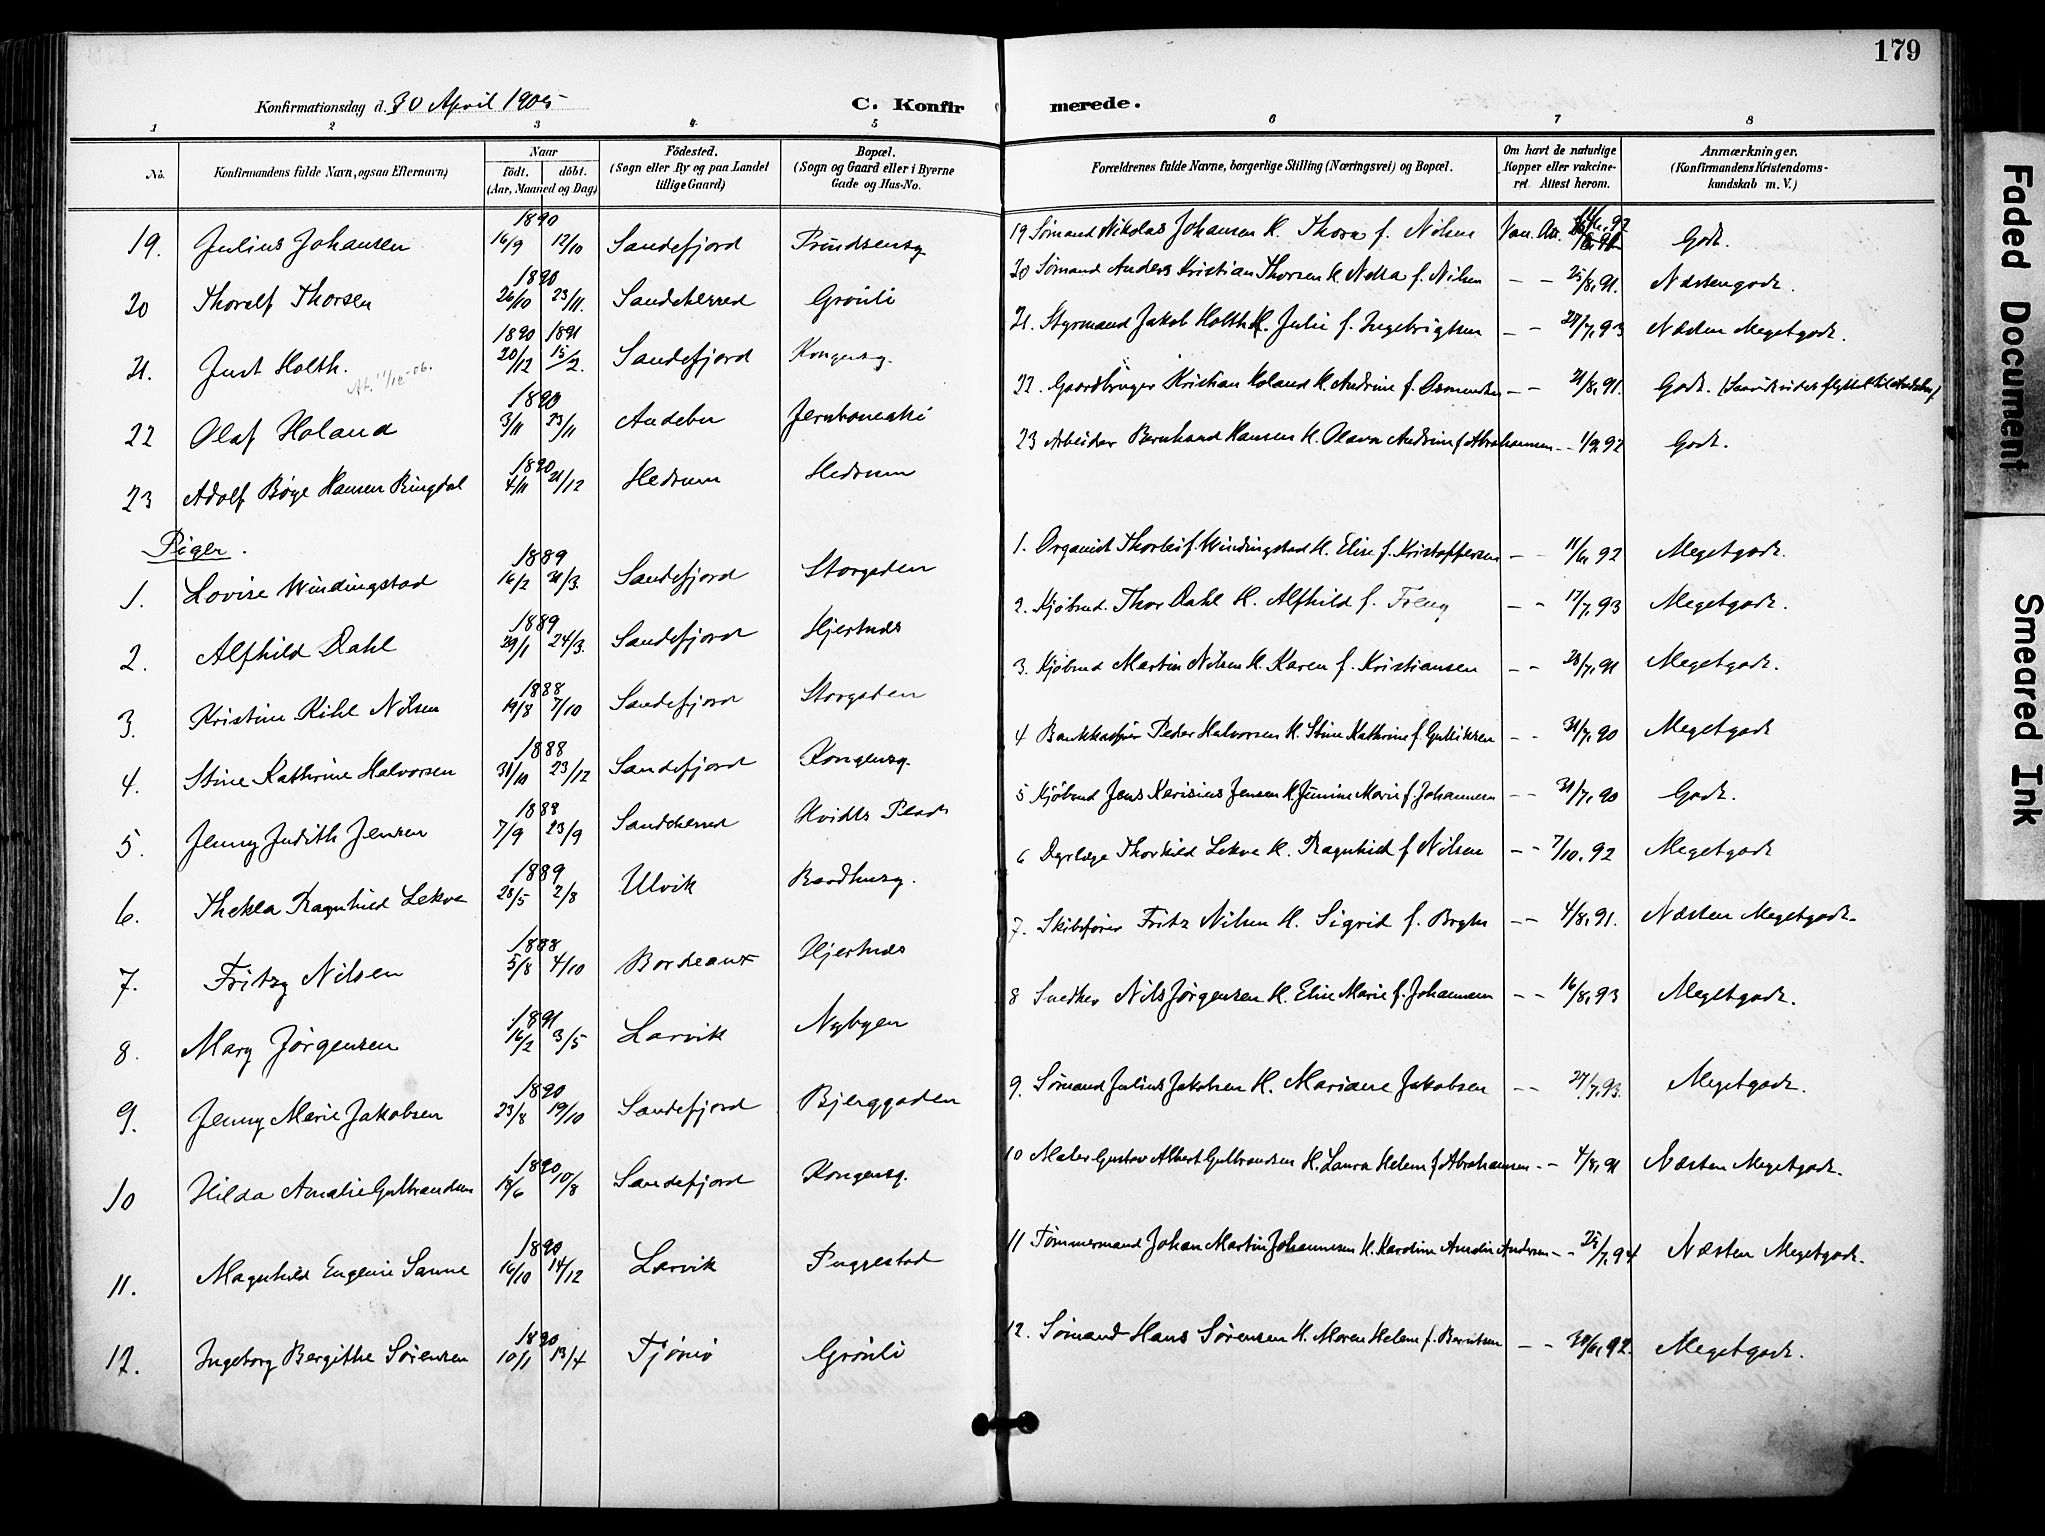 179
Konfirmationsdag d. 30 April 1905
C. Konfirmerede.
1 2 3 4 5 6 7 8
No.
Konfirmandens fulde Navn, ogsaa Efternavn)
Naar
födt. döbt.
(Aar, Maaned og Dag)
Födested.
(Sogn eller By og paa Landet
tillige Gaard)
Bopæl.
(Sogn og Gaard eller i Byerne
Gade og Hus-No.
Forældrenes fulde Navne, borgerlige Stilling (Næringsvei) og Bopæl.
Om havt de naturlige
Kopper eller vakcine-
ret Attest herom.
Anmærkninger.
(Konfirmandens Kristendoms-
kundskab m. V.)
19. Julius Johansen 1890 16/9 12/10 Sandefjord Prindsensg 19 Sømand Nikolas Johansen H. Thora f. Nilsen Van. Av. Godt.
20 Thoralf Thorsen 1890 26/10 23/11. Sandeherred Grønli 20 Sømand Anders Kristian Thorsen H. Netta f. Nilsen – – 25/8.91. Næstengodt.
21. Just Holth. 1890 1891 20/12 15/2. Sandefjord Kongensg. 21. Styrmand Jakob Holth H. Julie f. Ingebrigtsen – – 27/7.93 Næsten Megetgodt.
At. 11/12-06.
22 Olaf Holand 1890 3/11 23/11 Andebu Jernbanealle 22. Gaardbruger Kristian Holand H. Andrine f. – – 21/8.91. Godt.
23 Adolf Bøye Hansen Bingdal 1890 4/11 21/12 Hedrum Hedrum 23 Arbeider Bernhard Hansen H. Olava Andrine f. Abrahamsen – – 1/9.92 Godt.
Piger.
1. Lovise Windingstad 1889 16/2 31/3. Sandefjord Storgaden 1. Organist Thorleif Windingstad H. Elise f. Kristoffersen – – 11/6.92 Megetgodt.
2. Alfhild Dahl 1889 29/1 24/3. Sandefjord Hjertnes 2. Kjøbmd. Thor Dahl H. Alfhild f. Freng – – 17/7.93 Megetgodt.
3. Kristine Kihl Nilsen 1888 19/8 7/10 Sandefjord Storgaden 3. Kjøbmd Martin Nilsen H. Karen f. Kristiansen – – 28/7.91 Megetgodt.
4. Stine Kathrine Halvorsen 1888 31/10 23/12 Sandefjord Kongensg. 4 Bankkasser Peder Halvorsen H. Stine Kathrine f. Gulliksen – – 31/7.90 Megetgodt
5. Jenny Judith Jensen 1888 7/9 23/9 Sandeherred Hvidts Plads 5 Kjøbmd Jens Jensen H. Marie f. Johannesen – – 31/7.90 Godt.
6. Thekla Ragnhild Lekve 1889 28/5 2/8 Ulvik Raadhusg. 6 Dyrlæge Thorkild Lekve H. Ragnhild f. Nilsen – – 7/10.92 Megetgodt
7. Fritzy Nilsen 1888 5/8 4/10 Bordeaux Hjertnes 7. Skibsfører Fritz Nilsen H. Sigrid f. Bryhn – – 4/8.91. Næsten Megetgodt.
8. Mary Jørgensen 1891 16/2 3/5 Larvik Nybyen 8 Snedker Nils Jørgensen H. Elise Marie f. Johannesen – – 16/8.93 Megetgodt.
9. Jenny Marie Jakobsen 1890 23/8 19/10 Sandefjord Bjerggaden 9. Sømand Julius Jakobsen H. Mariane Jakobsen – – 27/7.93. Megetgodt.
10 Hilda Amalie Gulbrandsen 1890 18/6 10/8 Sandefjord Kongensg. 10 Maler Gustav Albert Gulbrandsen H. Laura Helene f. Abrahamsen – – 4/8.91 Næsten Megetgodt.
11. Magnhild Eugenie Sanne 1890 16/10 14/12 Larvik Puggestad 11 Tømmermand Johan Martin Johannesen H. Karoline Amalie Andersen – – 25/7.94 Næsten Megetgodt.
12. Ingeborg Bergithe Sørensen 1890 10/1 13/4 Tjømø Grønli 12. Sømand Hans Sørensen H. Maren Helene f. Berntsen – – 30/6.92. Megetgodt.
Faded Document
Smeared Ink